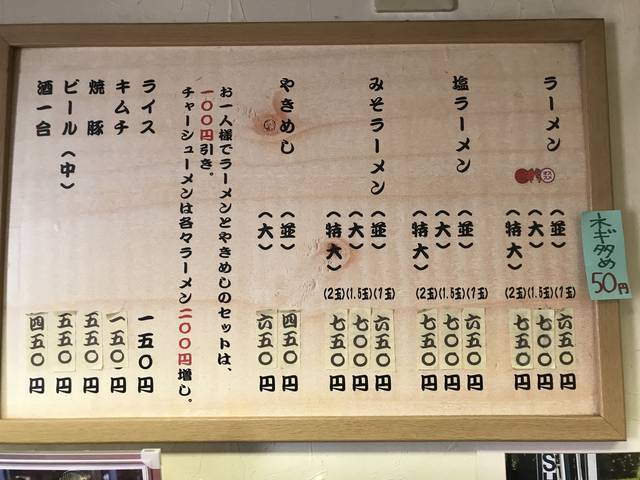 ラーメン
オススメ
(並)(1玉)六五〇円
(大)(1.5玉)七〇〇円
(特大)(2玉)七五〇円
塩ラーメン
(並)(1玉)六五〇円
(大)(1.5玉)七〇〇円
(特大)(2玉)七五〇円
みそラーメン
(並)(1玉)六五〇円
(大)(1.5玉)七〇〇円
(特大)(2玉)七五〇円
やきめし
(並)四五〇円
(大)六五〇円
お一人様でラーメンとやきめしのセットは、
一〇〇円引き。
チャーシューメンは各々ラーメン二〇〇円増し。
ライス 一五〇円
キムチ 一五〇円
焼豚 五五〇円
ビール(中) 五五〇円
酒一合 四五〇円
ネギ多め
50円